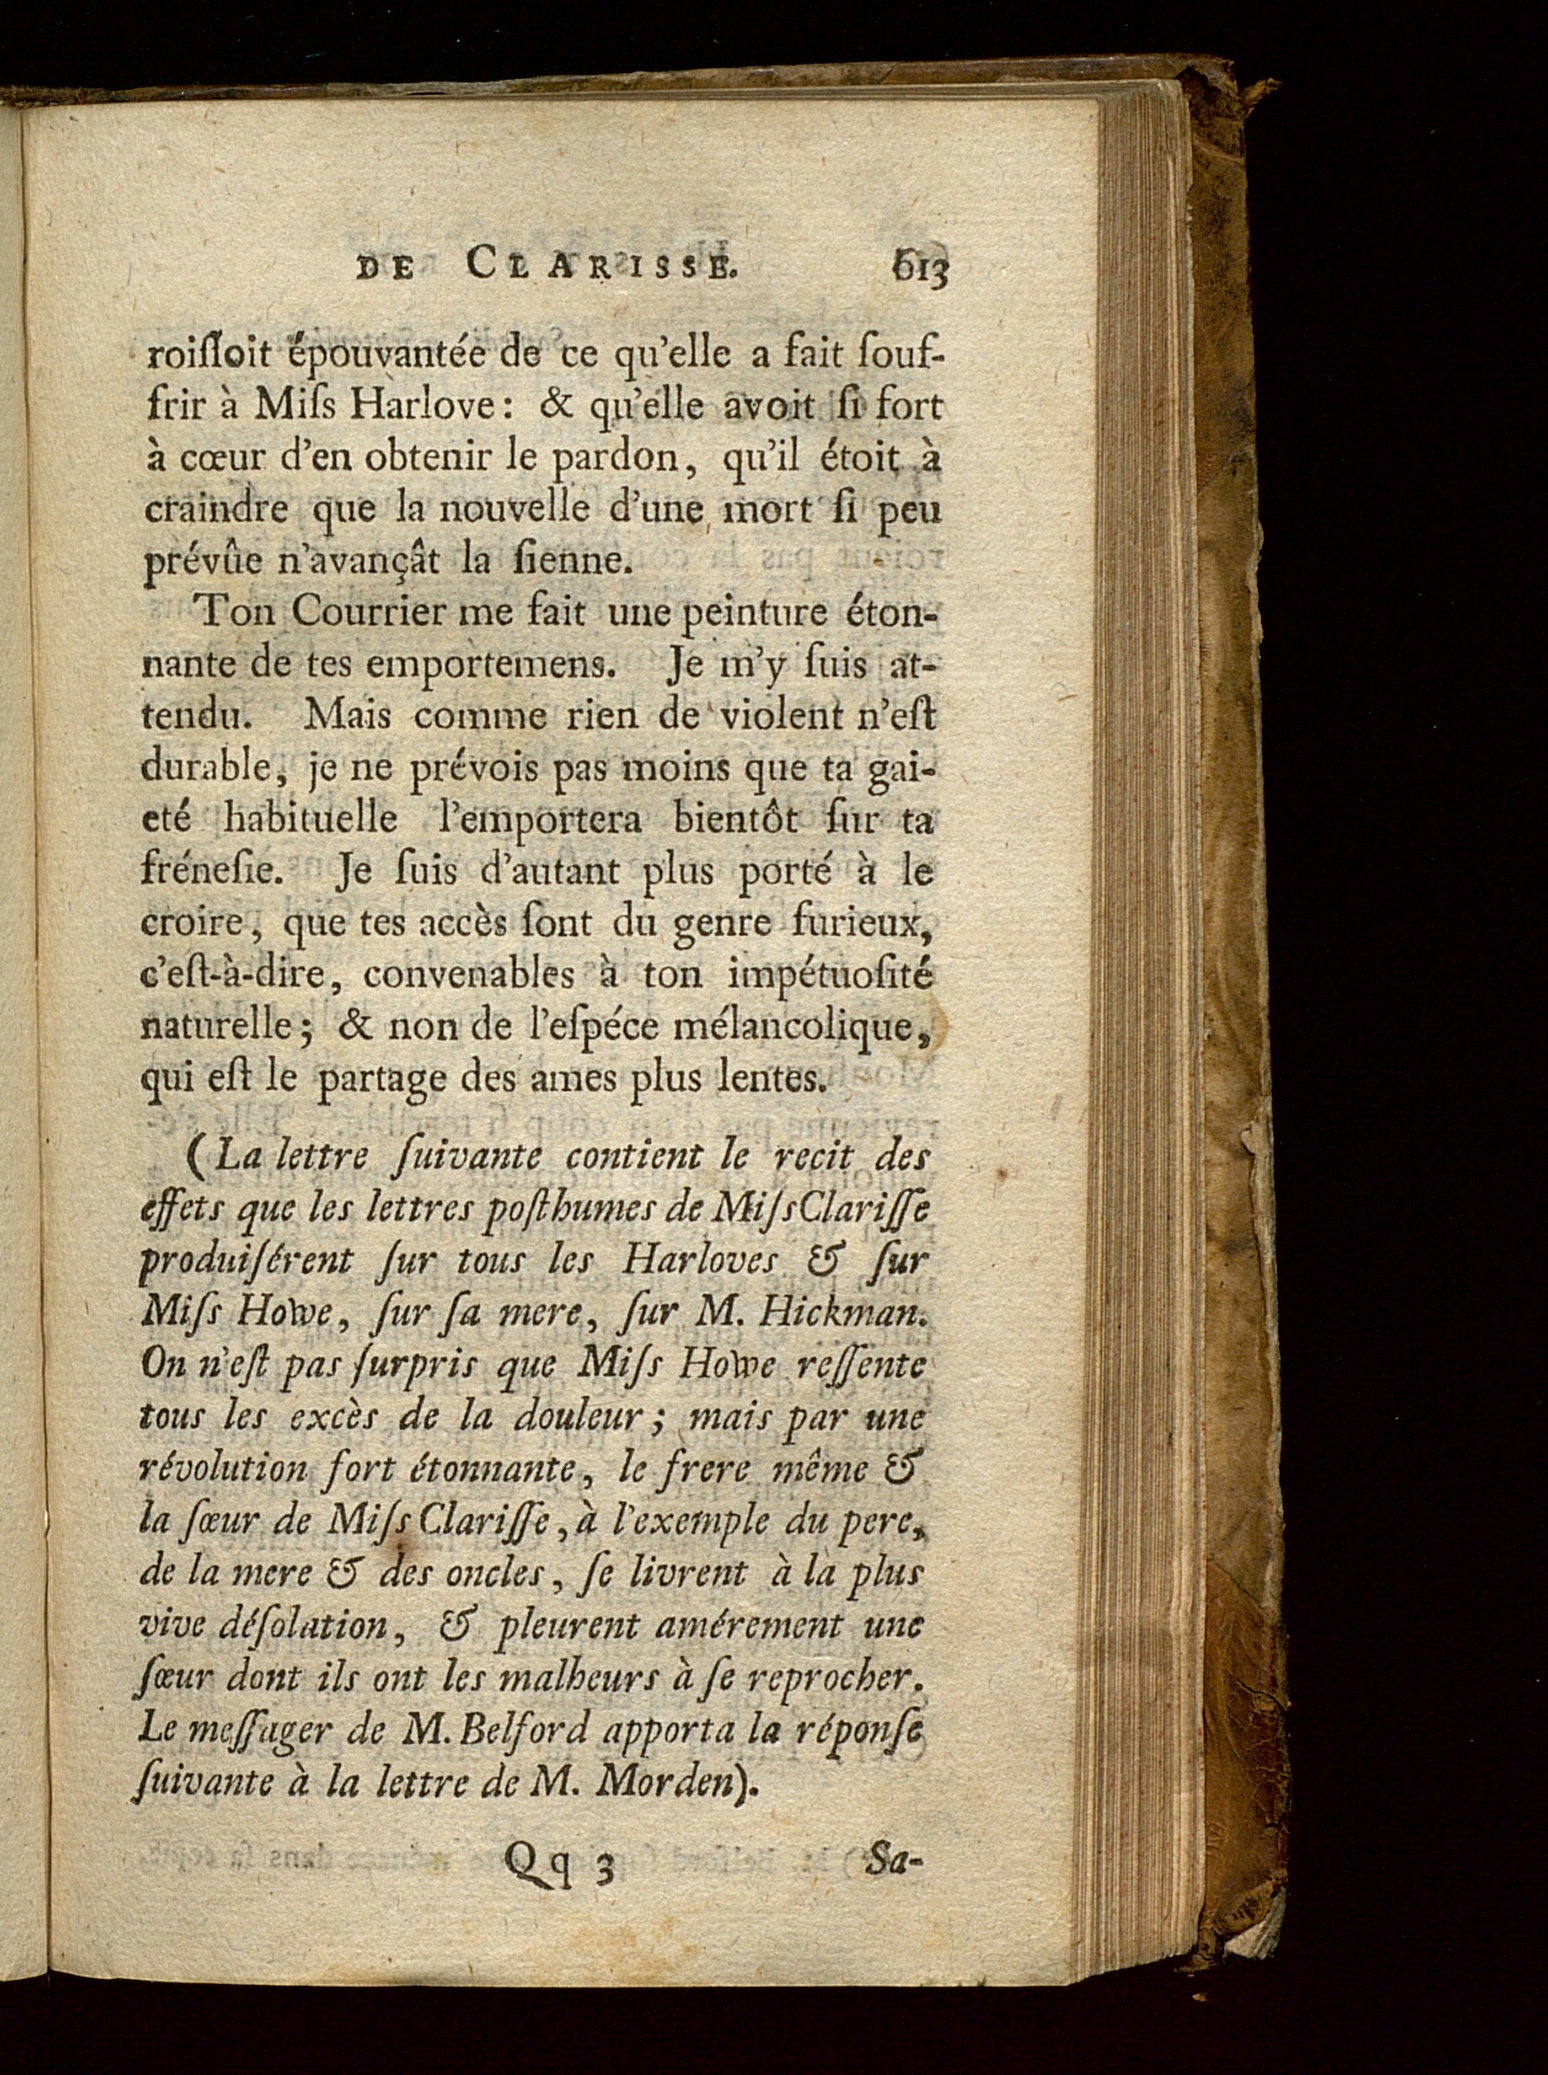 DE CLARISSE. 613
roiſſoit épouvantée de ce qu'elle a fait ſouf-
frir à Miſs Harlove: & qu'elle avoit ſi fort
à cœur d'en obtenir le pardon, qu'il étoit à
craindre que la nouvelle d'une mort ſi peu
prévûe n'avançât la ſienne.
Ton Courrier me fait une peinture éton-
nante de tes emportemens. Je m'y ſuis at-
tendu. Mais comme rien de violent n'eſt
durable, je ne prévois pas moins que ta gai-
eté habituelle l'emportera bientôt ſur ta
fréneſie. Je ſuis d'autant plus porté à le
croire, que tes accès ſont du genre furieux,
c'eſt-à-dire, convenables à ton impétuoſité
naturelle; & non de l'eſpéce mélancolique,
qui eſt le partage des ames plus lentes.
(La lettre ſuivante contient le recit des
effets que les lettres poſthumes de Miſs Clariſſe
produiſérent ſur tous les Harloves & ſur
Miſs Howe, ſur ſa mere, ſur M. Hickman.
On n'eſt pas ſurpris que Miſs Howe reſſente
tous les excès de la douleur; mais par une
révolution fort étonnante, le frere même &
la ſœur de Miſs Clariſſe, à l'exemple du pere,
de la mere & des oncles, ſe livrent à la plus
vive déſolation, & pleurent amérement une
ſœur dont ils ont les malheurs à ſe reprocher.
Le meſſager de M. Belford apporta la réponſe
ſuivante à la lettre de M. Morden).
Qq 3 Sa-